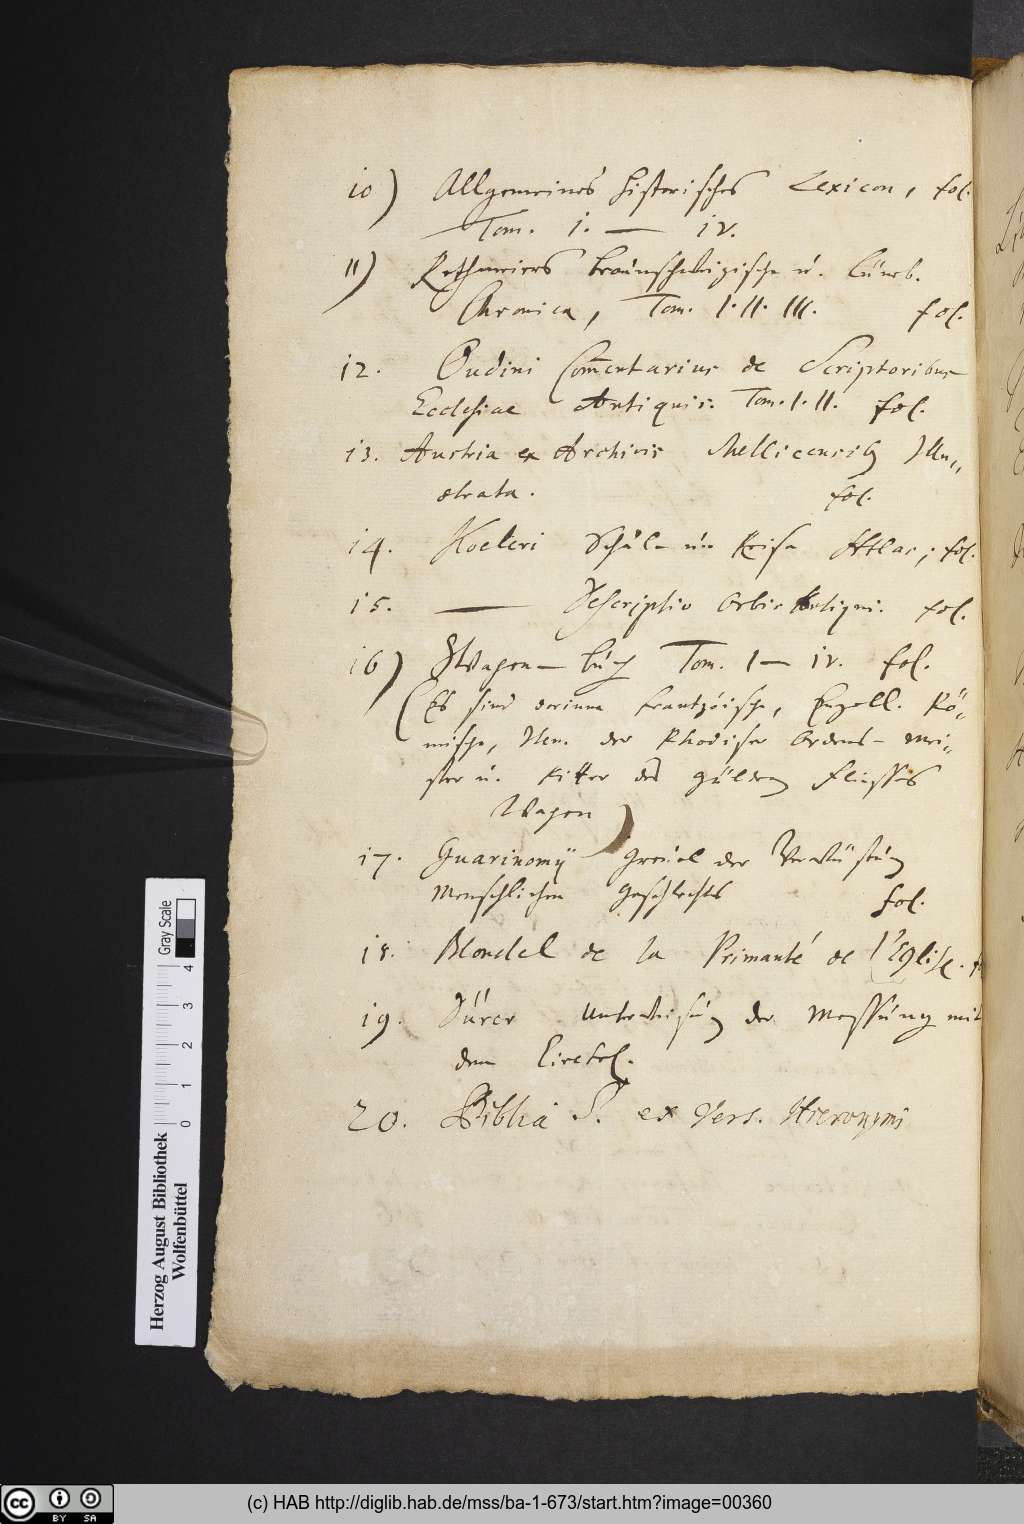 10) Allgemeines historisches Lexicon, fol.
Tom. I. — IV.
11) Rethmeiers braunschweigische u. Lüneb.
Chronica, Tom. I. II. III. fol.
12. Oudini Com̄entarius de Scriptoribus
Ecclesiae Antiquis. Tom. I. II. fol.
13. Austria ex Archivis Mellicensibꝫ Illu„
strata. fol.
14. Koeleri Schul- und Reise Atlas, fol.
15. — Descriptio Orbis Antiqui. fol.
16) Wapen-buch Tom. I — IV. fol.
(Es sind darinne Frantzöische, Engell. Rö„
mische, Item. der Rhodiser Ordens-Mei„
ster u. Ritter des güldenen Fliesses
Wapen)
17. Guarinonij Greuel der Verwüstung
Menschlichen Geschlechts fol.
18. Blondel de la Primauté de l'Eglise.
19. Dürer Unterweisung der Messung mit
dem Circkel.
20. Biblia S. ex Vers. Hieronymi
Gray Scale
4
3
2
1
0
Herzog August Bibliothek
Wolfenbüttel
cc BY SA
(c) HAB http://diglib.hab.de/mss/ba-1-673/start.htm?image=00360